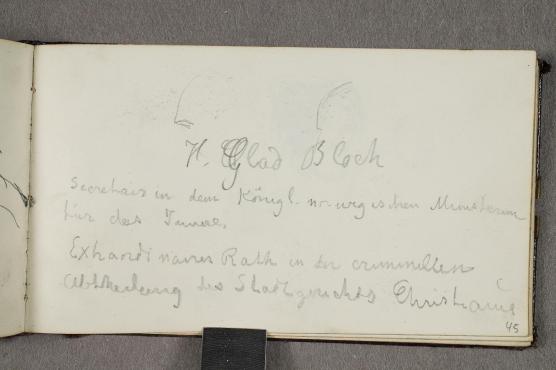 H. Glad Bloch
Secretair in dem Königl. norwegischen Ministerium
für das Innere.
Extraordinairer Rath in der criminellen
Abtheilung des Stadtgerichts Christiania
45